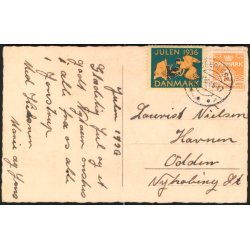 Julen 1936
Glædelig Jul og et
godt Nytaar ønskes
i alle fra os alle
i Jonstrup
Med Hilsen
Marie og Jens
JULEN 1936
DANMARK
Laurist Nielsen
Havnen
Odden
Nykøbing Sj.